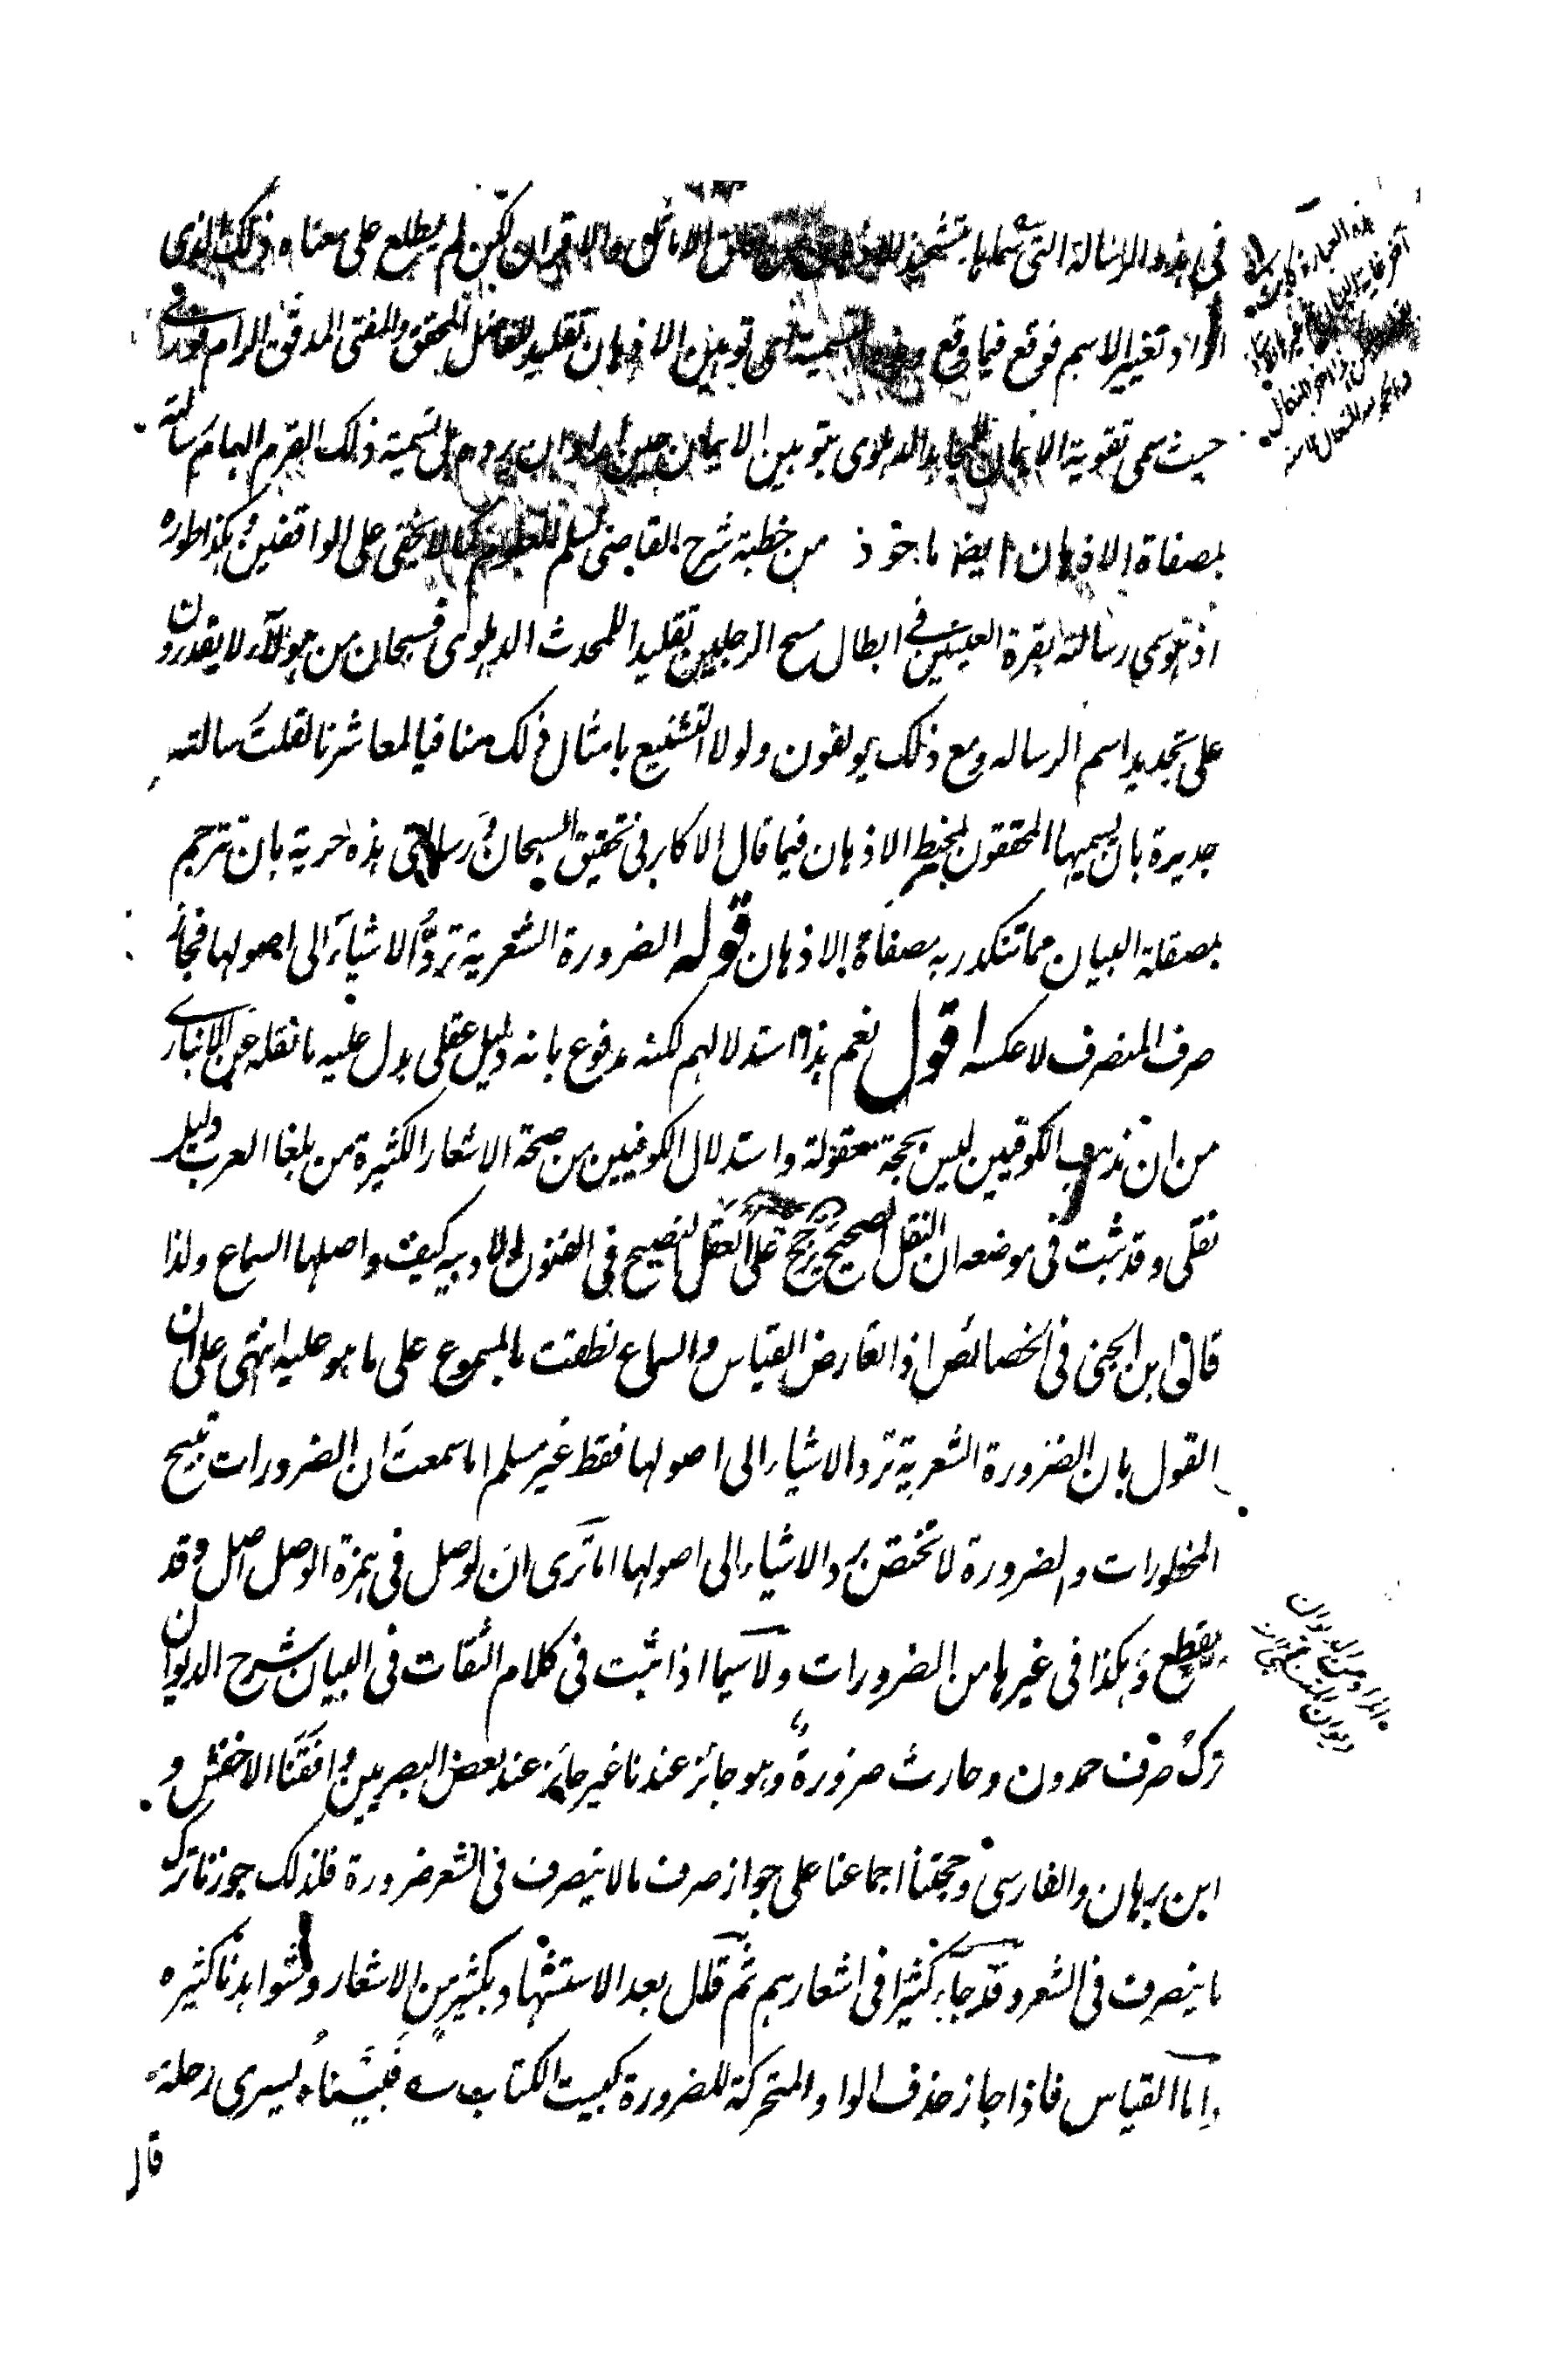 في هذه الرسالة التي سماها بتشحيذ الاذهان الاماثل والاقران لكن لم يطلع على معناه وذلك الذى
اراد تغيير الاسم فوقع فيما وقع التسمية توهين الاذهان تقليد الفاضل المحقق والمفتى المدقق الرام فورى
حيث سمى تقوية الايمان للمجاهد الدهلوى بتوهين الايمان حين اراد ان يروم تسمية ذلك القرم الهمام رسالته
بمصفاة الاذهان ايضا ماخوذ من خطبة شرح القاضى لسلم العلوم كما لا يخفى على الواقفين وهكذا طوره
اذ هو سمى رسالته بقرة العينين فى ابطال مسح الرجلين تقليدا للمحدث الدهلوى فسبحان من هؤلاء لا يقدرون
على تجديد اسم الرسالة ومع ذلك يولفون ولولا التشنيع بامثال ذلك منافيا لمعاشرنا لقلت رسالته
جديرة بان يسميها المحققون بخبط الاذهان فيما قال الاكابر فى تحقيق السبحان ورسالتى هذه حرية بان تترجم
بمصقلة البيان مما تتكدر به مصفاة الاذهان قوله الضرورة الشعرية تردُّ الاشياء الى اصولها فجاز
صرف المنصرف لا عكسه اقول نعم هذا استدلالهم لكنه مدفوع بانه دليل عقلى يدل عليه ما نقله عن الانبارى
من ان مذهب الكوفيين ليس بحجة معقولة واستدلال الكوفيين من صحة الاشعار الكثيرة من بلغا العرب دليل
نقلى وقد ثبت فى موضعه ان النقل الصحيح يرجح على العقل النصيح فى الفنون الادبيه كيف واصلها السماع ولذا
قال ابن الجنى فى الخصائص اذا تعارض القياس والسماع نطقت بالمسموع على ما هو عليه انتهى على ان
القول بان الضرورة الشعرية ترد الاشياء الى اصولها فقط غير مسلم اما سمعت ان الضرورات تبيح
المحظورات والضرورة لا تختص برد الاشياء الى اصولها اما ترى ان الوصل فى همزة الوصل اصل وقد
يقطع وهكذا فى غيرها من الضرورات ولا سيما اذا ثبت فى كلام الثقات فى البيان شرح الديوان
ترك صرف حمدون وحارث ضرورةً وهو جائز عندنا غير جائز عند بعض البصريين وافقنا الاخفش و
ابن برهان والفارسى وحجتنا اجماعنا على جواز صرف ما لا ينصرف فى الشعر ضرورة فلذلك جوزنا ترك
ما ينصرف فى الشعر وقد جاء كثيرا فى اشعارهم ثم قال بعد الاستشهاد بكثير من الاشعار وشواهدنا كثيره
واما القياس فاذا جاز حذف الواو المتحركة للضرورة كبيت الكتاب فبيناه يسرى رحله
قال